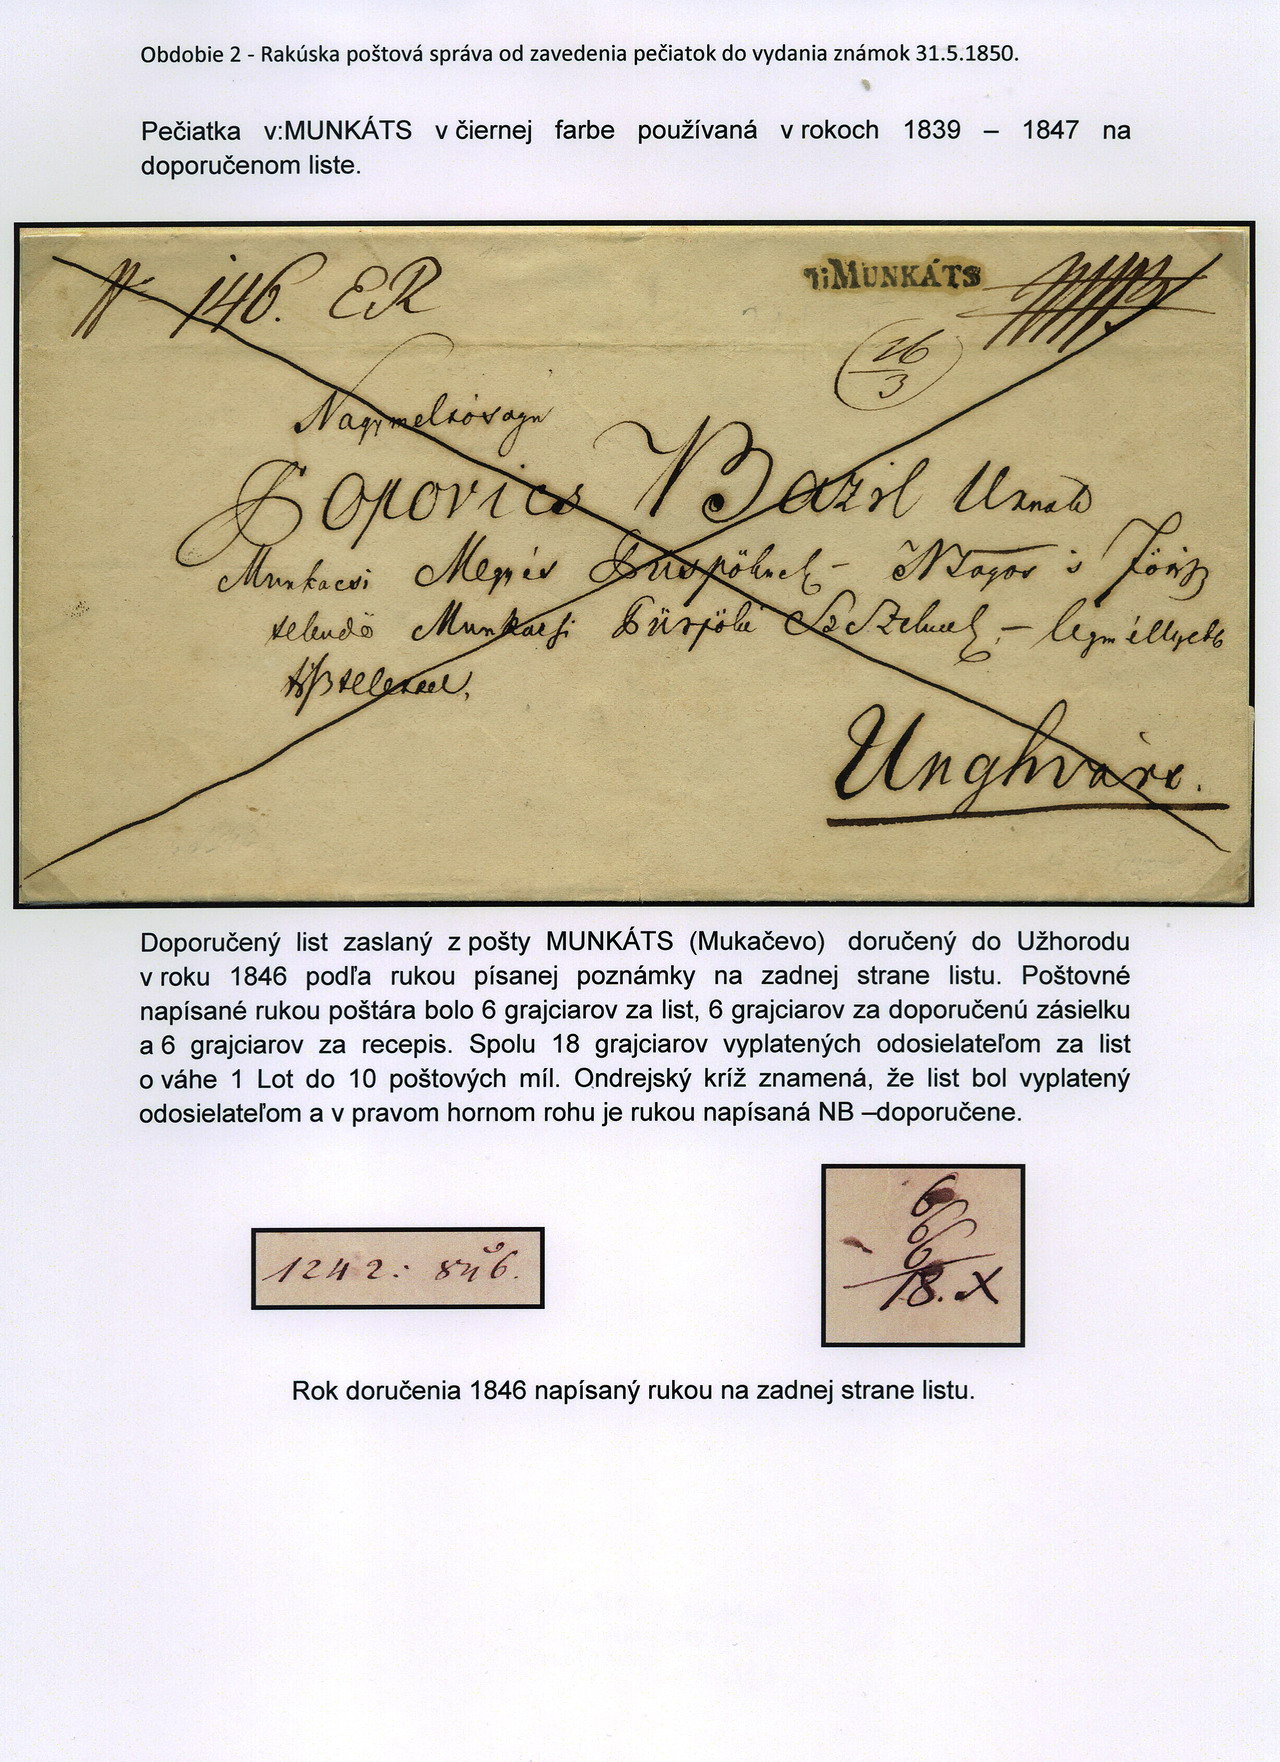 Obdobie 2 - Rakúska poštová správa od zavedenia pečiatok do vydania známok 31.5.1850.
Pečiatka v:MUNKÁTS v čiernej farbe používaná v rokoch 1839 – 1847 na
doporučenom liste.
146. ER
v:MUNKÁTS
26
3
Nagyméltóságu
Popovics Bazil Urnak
Munkacsi Megyés Püspöknek -
Munkacsi Püspöki
Unghvárt.
Doporučený list zaslaný z pošty MUNKÁTS (Mukačevo) doručený do Užhorodu
v roku 1846 podľa rukou písanej poznámky na zadnej strane listu. Poštovné
napísané rukou poštára bolo 6 grajciarov za list, 6 grajciarov za doporučenú zásielku
a 6 grajciarov za recepis. Spolu 18 grajciarov vyplatených odosielateľom za list
o váhe 1 Lot do 10 poštových míl. Ondrejský kríž znamená, že list bol vyplatený
odosielateľom a v pravom hornom rohu je rukou napísaná NB –doporučene.
6
6
6
18. X
1242: 846.
Rok doručenia 1846 napísaný rukou na zadnej strane listu.